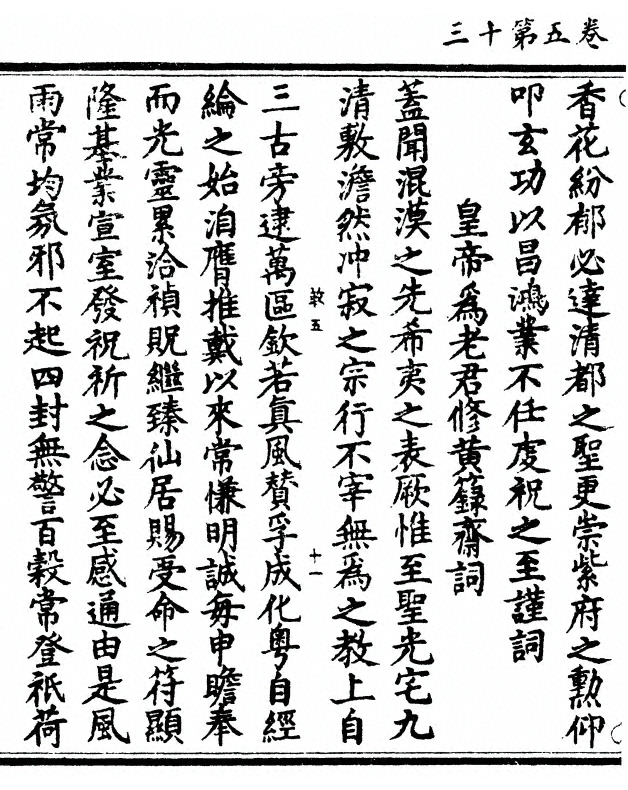 卷五第十三
香花紛郁必達清都之聖更崇紫府之勲仰
叩玄功以昌鴻業不任虔祝之至謹詞
皇帝爲老君修黄籙齋詞
蓋聞混漠之先希夷之表厥惟至聖光宅九
清敷澹然冲寂之宗行不宰無爲之教上自
敦五
十一
三古旁逮萬區欽若眞風賛孚成化粤自經
綸之始洎膺推戴以來常慊明誠每申瞻奉
而光靈累洽禎貺繼臻仙居賜受命之符顯
隆基業宣室發祝祈之念必至感通由是風
雨常均氛邪不起四封無警百穀常登祇荷